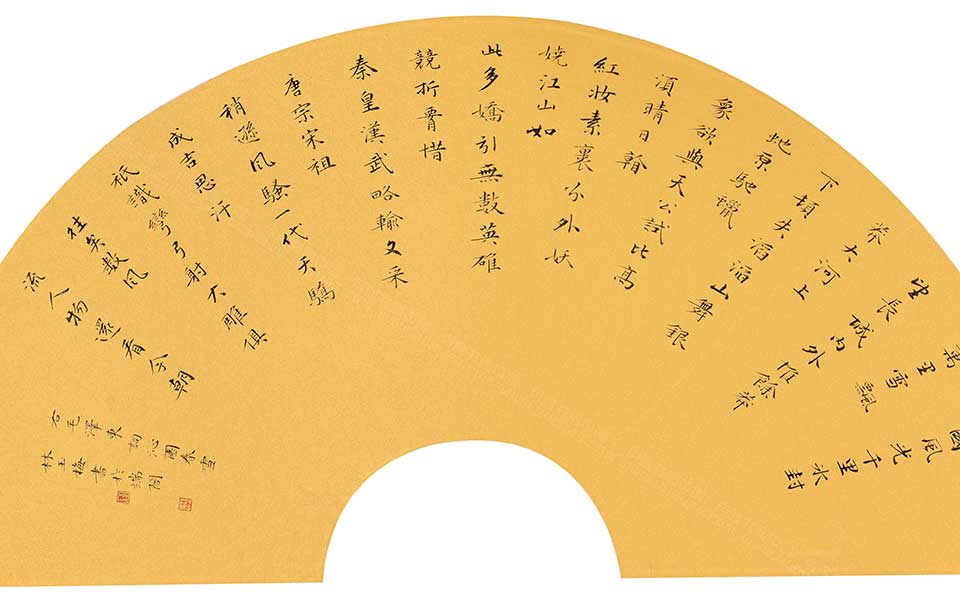 國風光千里冰封
萬里雪飄
望長城內外惟餘莽
莽大河上
下頓失滔滔山舞銀
蛇原馳蠟
象欲與天公試比高
湏晴日看
紅妝素裹分外妖
嬈江山如
此多嬌引無數英雄
競折腰惜
秦皇漢武略輸文采
唐宗宋祖
稍遜風騷一代天驕
成吉思汗
祇識彎弓射大雕俱
往矣数風
流人物還看今朝
右毛澤東詞沁園春雪
林玉梅書於端閣